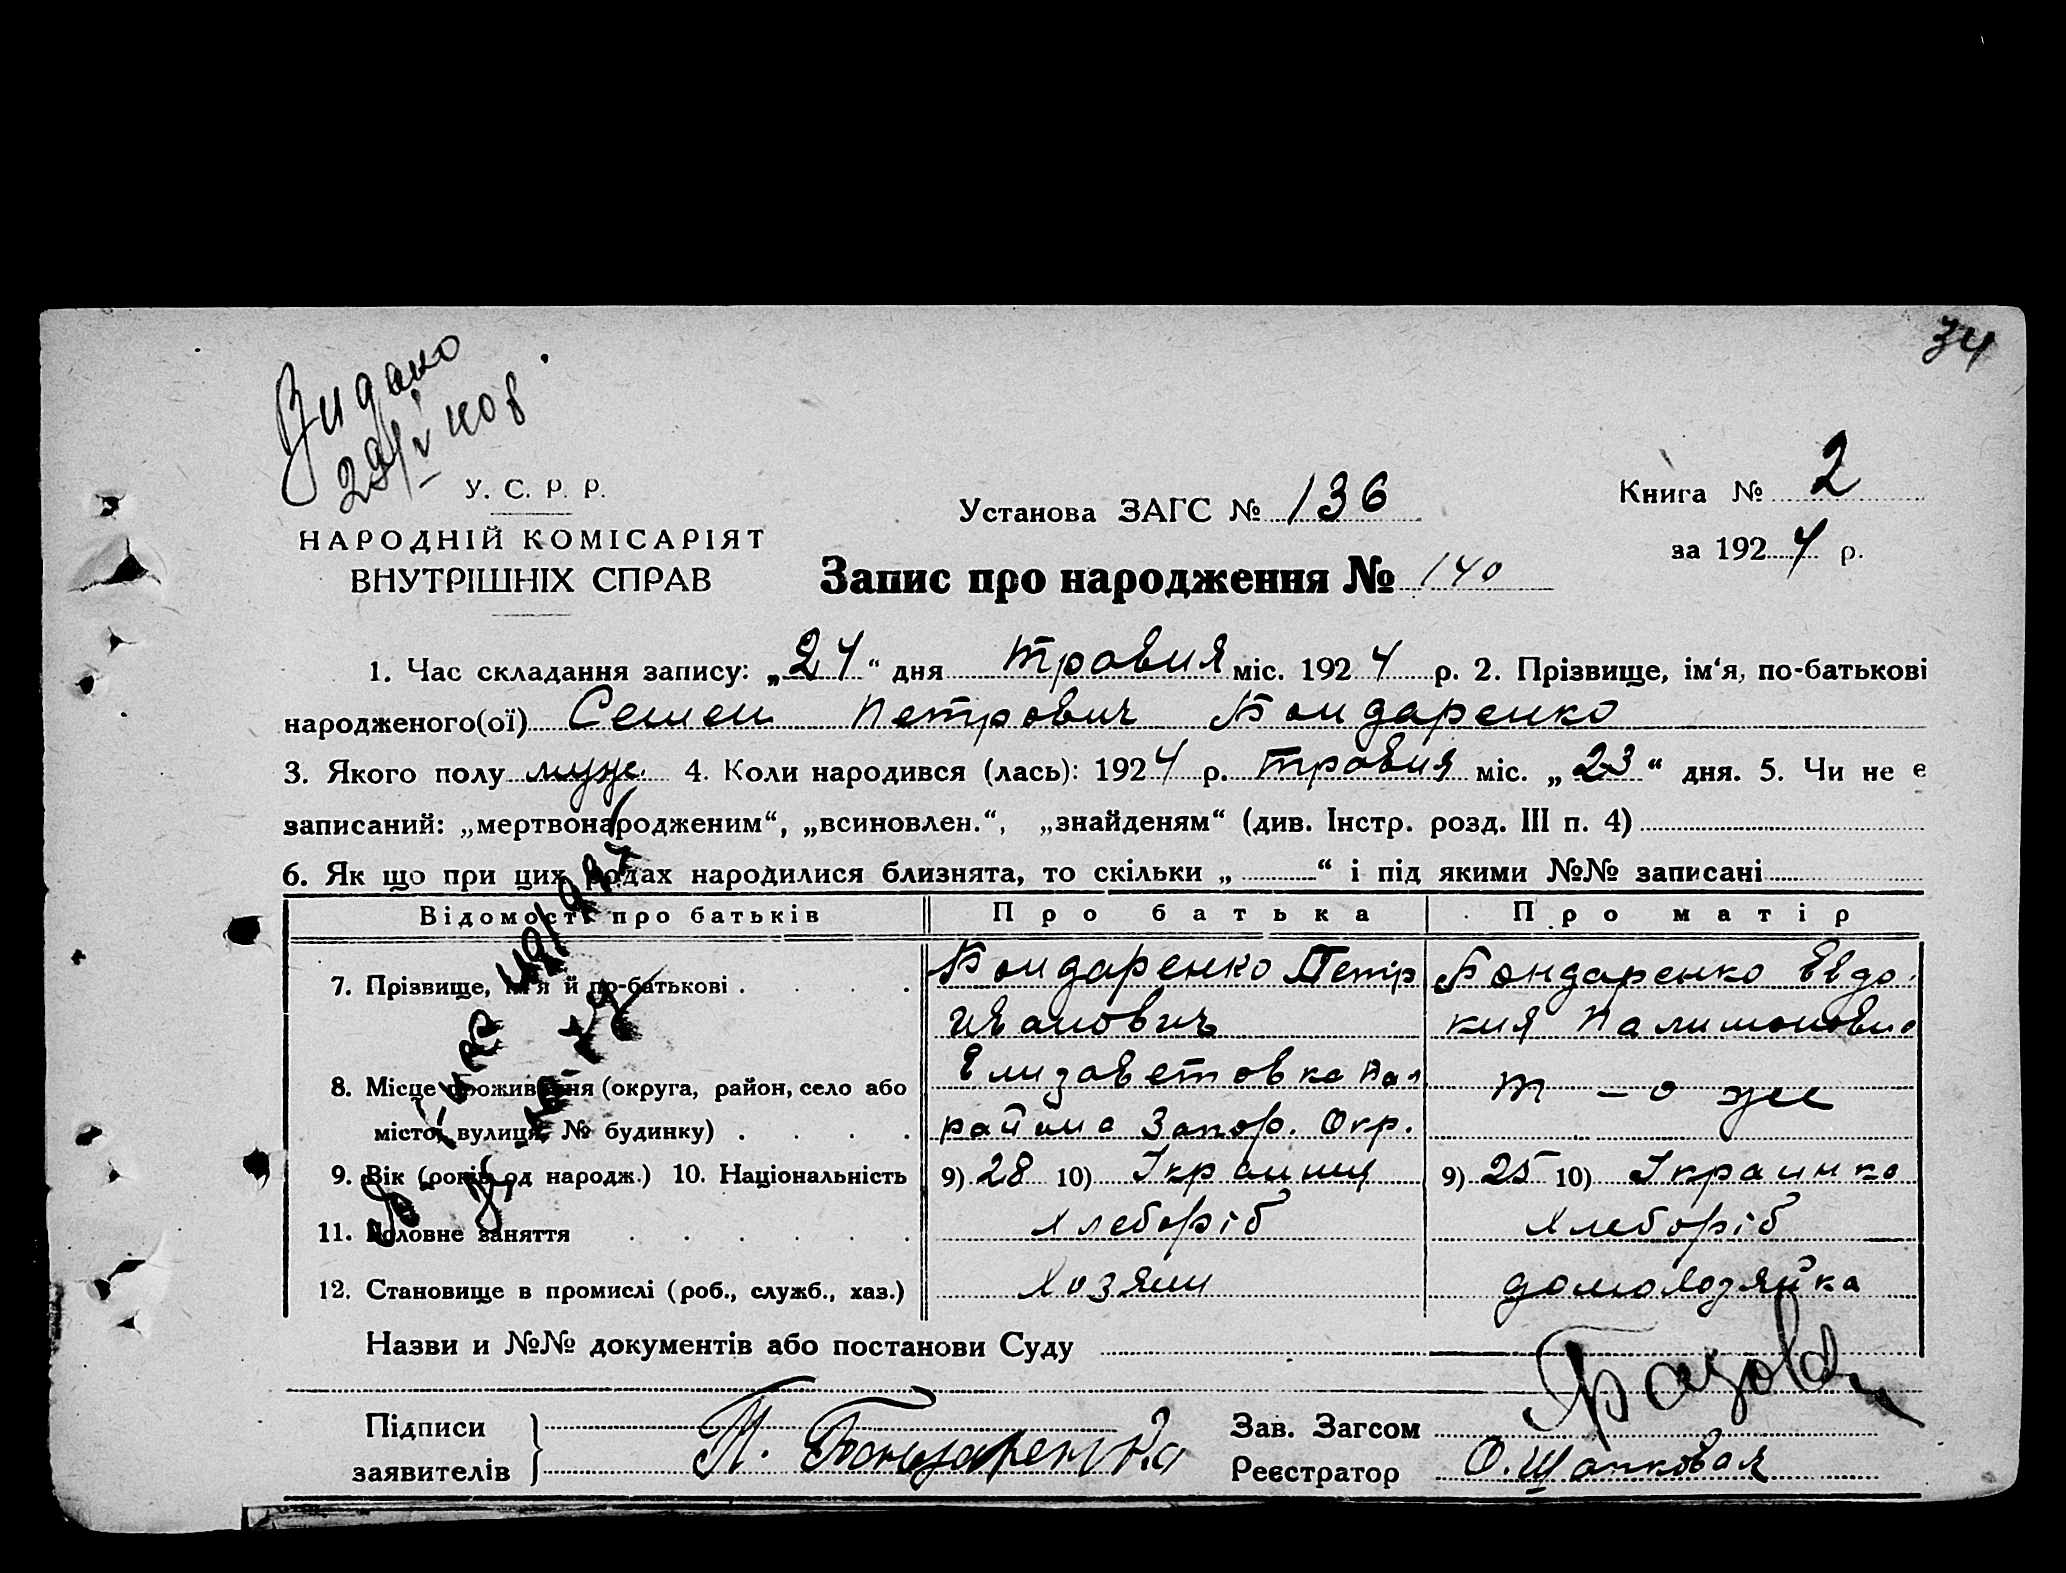 34
Видано
У. С. Р. Р.
НАРОДНІЙ КОМІСАРІЯТ
ВНУТРІШНІХ СПРАВ
Установа ЗАГС № 136
Книга № 2
за 1924 р.
Запис про народження № 140
1. Час складання запису: „24“ дня травня міс. 1924 р. 2. Прізвище, ім‘я, по-батькові
народженого(ої) Семен Петрович Бондаренко
3. Якого полу муж. 4. Коли народився (лась): 1924 р. травня міс. „23“ дня. 5. Чи не є
записаний: „мертвонародженим“, „всиновлен.“, „знайденям“ (див. Інстр. розд. III п. 4)
6. Як що при цих родах народилися близнята, то скільки „ “ і під якими №№ записані
Відомості про батьків Про батька Про матір
7. Прізвище, ім‘я й по-батькові Бондаренко Петр Бондаренко Евдо-
Иванович кия
8. Місце проживання (округа, район, село або Елизаветовка т-о же
місто, вулиця, № будинку) района Запор. Окр.
9. Вік (років од народж.) 10. Національність 9) 28 10) Украинц 9) 25 10) Украинка
11. Головне заняття хлеборіб хлеборіб
12. Становище в промислі (роб., служб., хаз.) хозяин домохозяйка
Назви и №№ документів або постанови Суду
Підписи
заявителів П. Бондаренко
Зав. Загсом
Реєстратор О. Шапковая